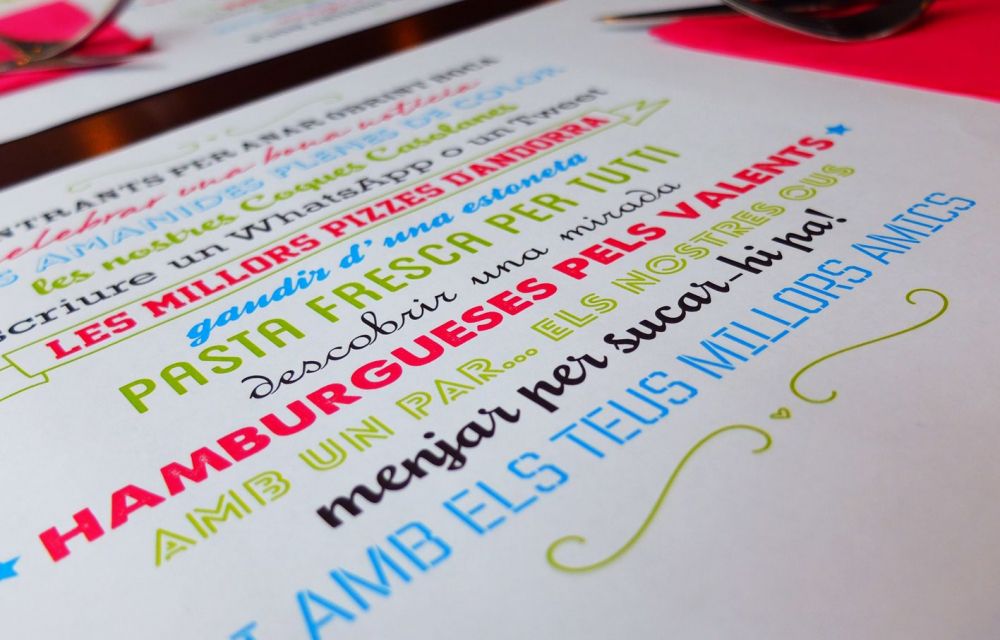 ENTRANTS PER ANAR OBRINT BOCA
celebrar una bona notícia
AMANIDES PLENES DE COLOR
les nostres Coques Casolanes
escriure un WhatsApp o un Tweet
LES MILLORS PIZZES D'ANDORRA
gaudir d'una estoneta
PASTA FRESCA PER TUTTI
descobrir una mirada
HAMBURGUESES PELS VALENTS
AMB UN PAR... ELS NOSTRES OUS
menjar per sucar-hi pa!
AMB ELS TEUS MILLORS AMICS